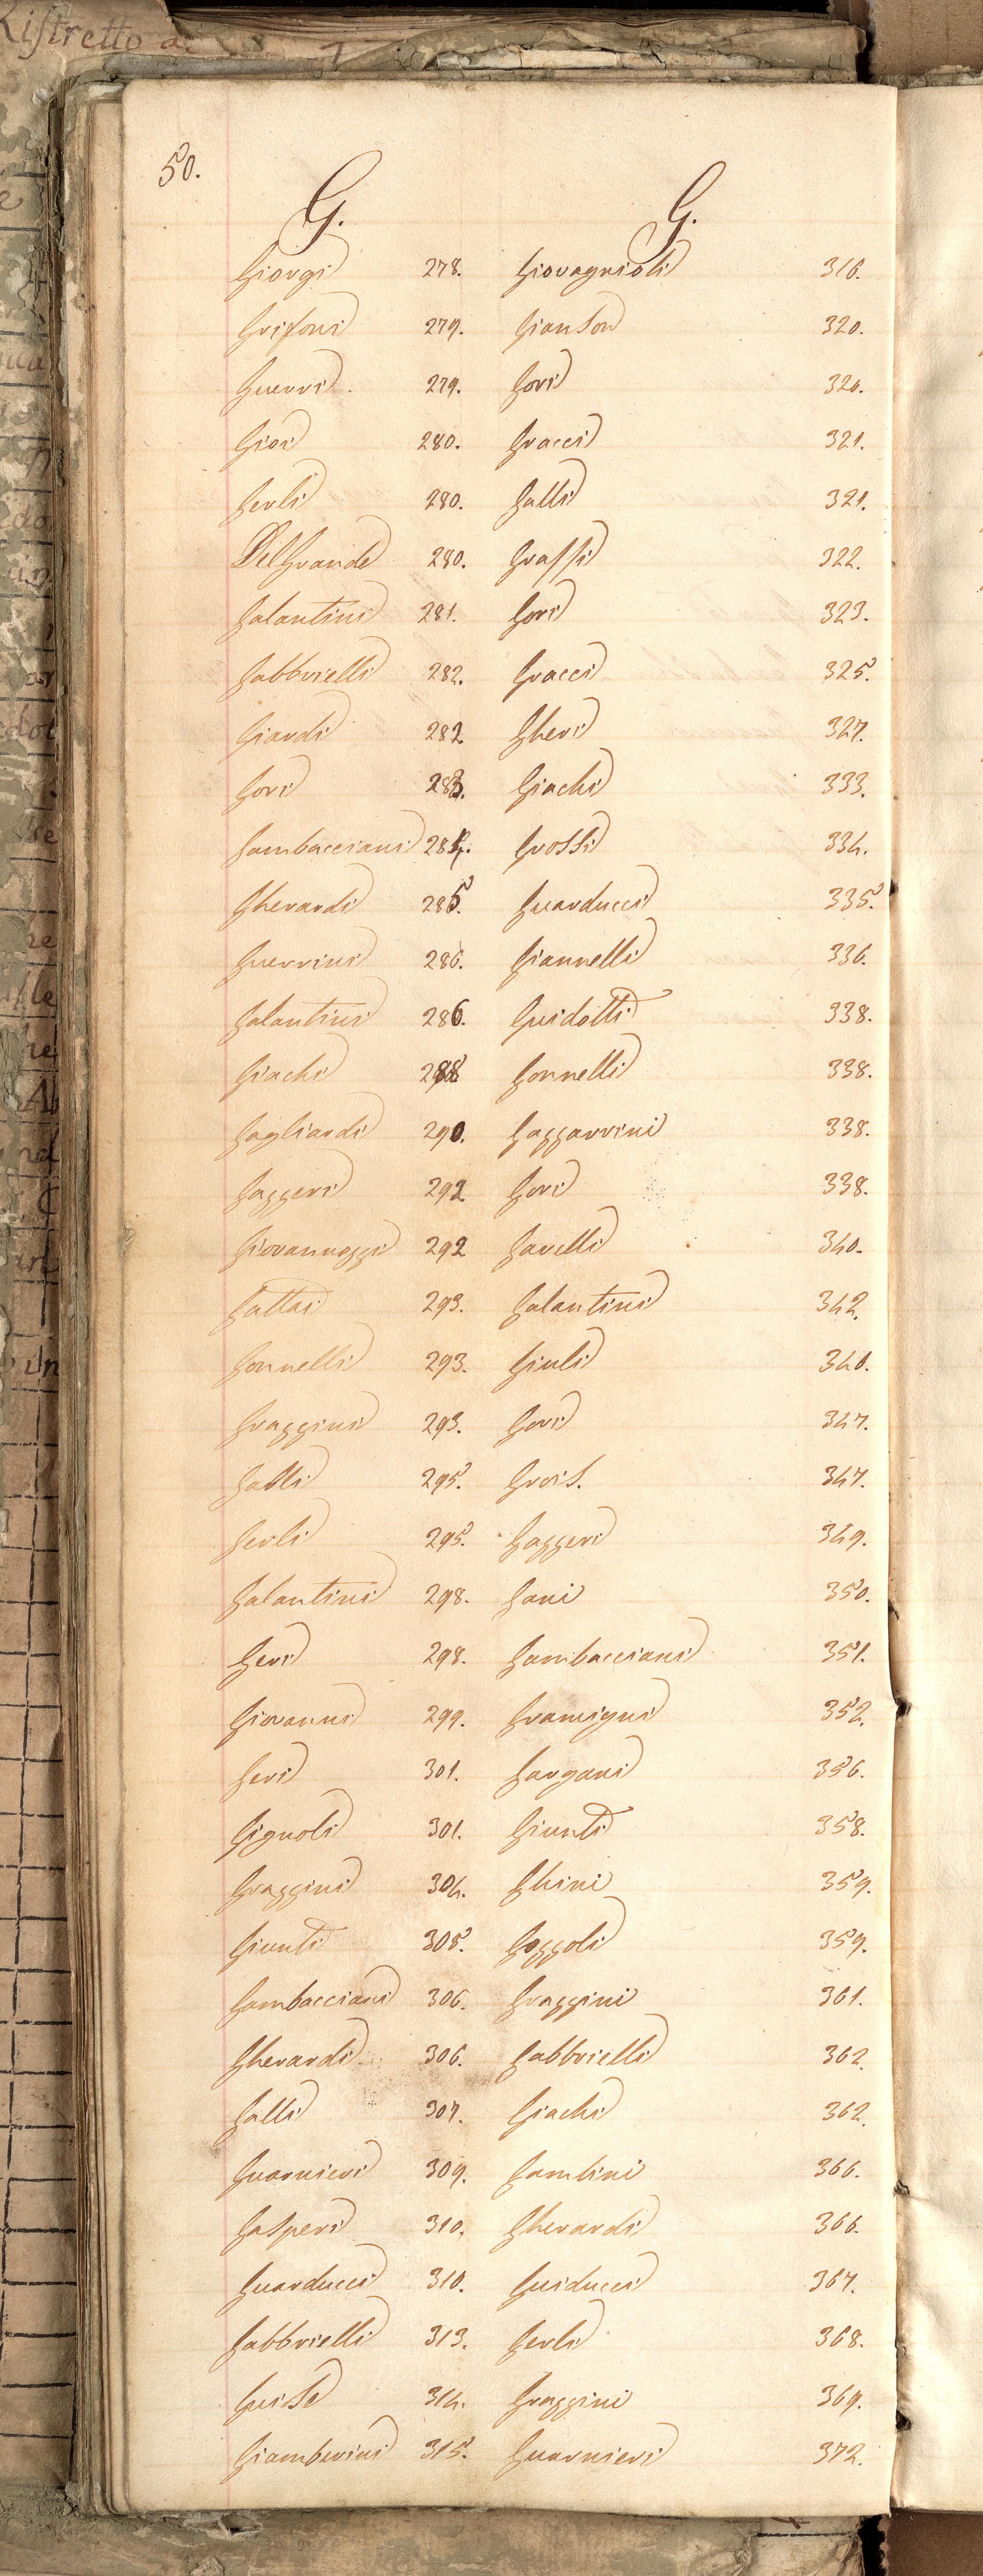 Ristretto de
50.
G. G.
Giorgi 278. Giovagnioli 316.
Grifoni 279. Gianson 320.
Guerri 279. Gori 320.
Giosi 280. Gracci 321.
Gerli 280. Galli 321.
Del Grande 280. Grassi 322.
Galantini 281. Gori 323.
Gabbrielli 282. Gracci 325.
Giardi 282 Gheri 327.
Gori 283. Giachi 333.
Gambacciani 284. Grossi 334.
Gherardi 285. Guarducci 335.
Guerrini 286. Giannelli 336.
Galantini 286. Guidotti 338.
Giachi 288 Gonnelli 338.
Gagliardi 290. Gazzarrini 338.
Gaggeri 292 Gori 338.
Giovannozzi 292 Gavelli 340.
Gattai 293. Galantini 342.
Gonnelli 293. Giuli 340.
Grazzini 293. Gori 347.
Galli 295. Grois. 347.
Gerli 295. Gaggeri 349.
Galantini 298. Gani 350.
Geri 298. Gambacciani 351.
Giovanni 299. Gramigni 352.
Geri 301. Gargani 356.
Gignoli 301. Giunti 358.
Grazzini 304. Ghini 359.
Giunti 305. Gozzoli 359.
Gambacciani 306. Grazzini 361.
Gherardi 306. Gabbrielli 362.
Galli 307. Giachi 362.
Guarnieri 309. Gamlini 366.
Gasperi 310. Gherardi 366.
Guarducci 310. Guiducci 367.
Gabbrielli 313. Gerli 368.
Guise 314. Grazzini 369.
Giamberini 315. Guarnieri 372.